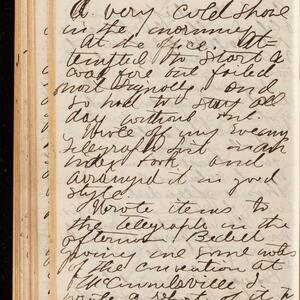 A very cold shore
in the morning
At the office. At-
tempted to start a
coal fire but failed
most signally and
so had to stay all
day without one.
Wrote off my Evening
Telegraph list in an
index book and
arranged it in good
style.
Wrote items to
the Telegraph in the
afternoon! Besides
giving me some notes
of the convention at
McConnelsville I
wrote